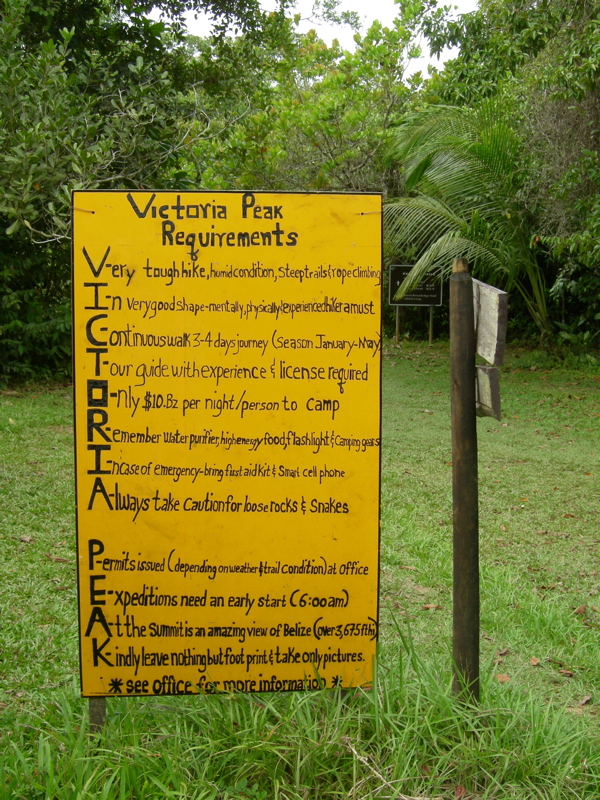 Victoria Peak
Requirements
V-ery tough hike, humid condition, Steep trails & rope climbing
I-n very good shape-mentally, physically & experienced hiker a must
C-ontinuous walk 3-4 days journey (Season January-May)
T-our guide with experience & license required
O-nly $10.Bz per night/person to camp
R-emember water purifier, high energy food, flashlight & Camping gears
I-ncase of emergency-bring first aid Kit & Smart cell phone
A-lways take Caution for loose rocks & Snakes
P-ermits issued (depending on weather & trail condition) at office
E-xpeditions need an early start (6:00am)
A-t the Summit is an amazing view of Belize (over 3,675 ft hi)
Kindly leave nothing but foot print & take only pictures.
* see office for more information *